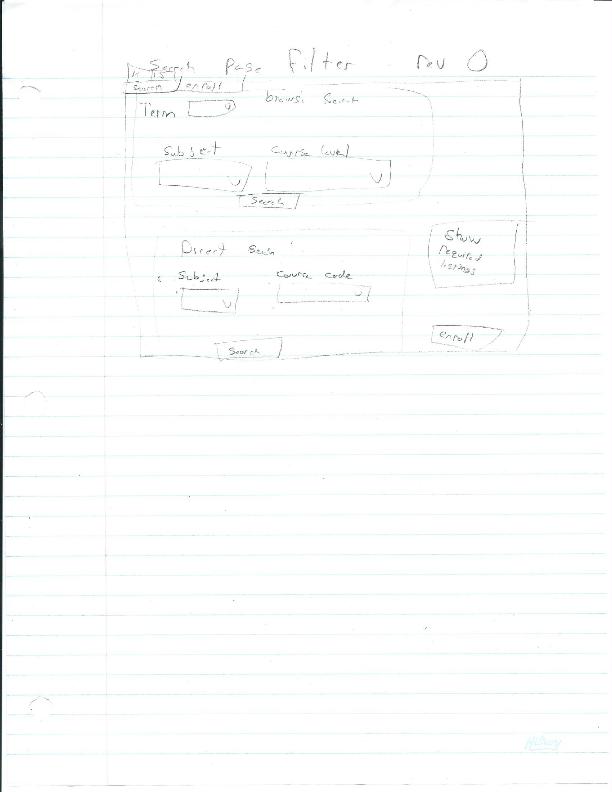 Search Page Filter rev 0
search enroll
Term browse Search
Subject Course level
Search
Direct
Show
Subject Course code
required
listings
enroll
Search
Hilroy